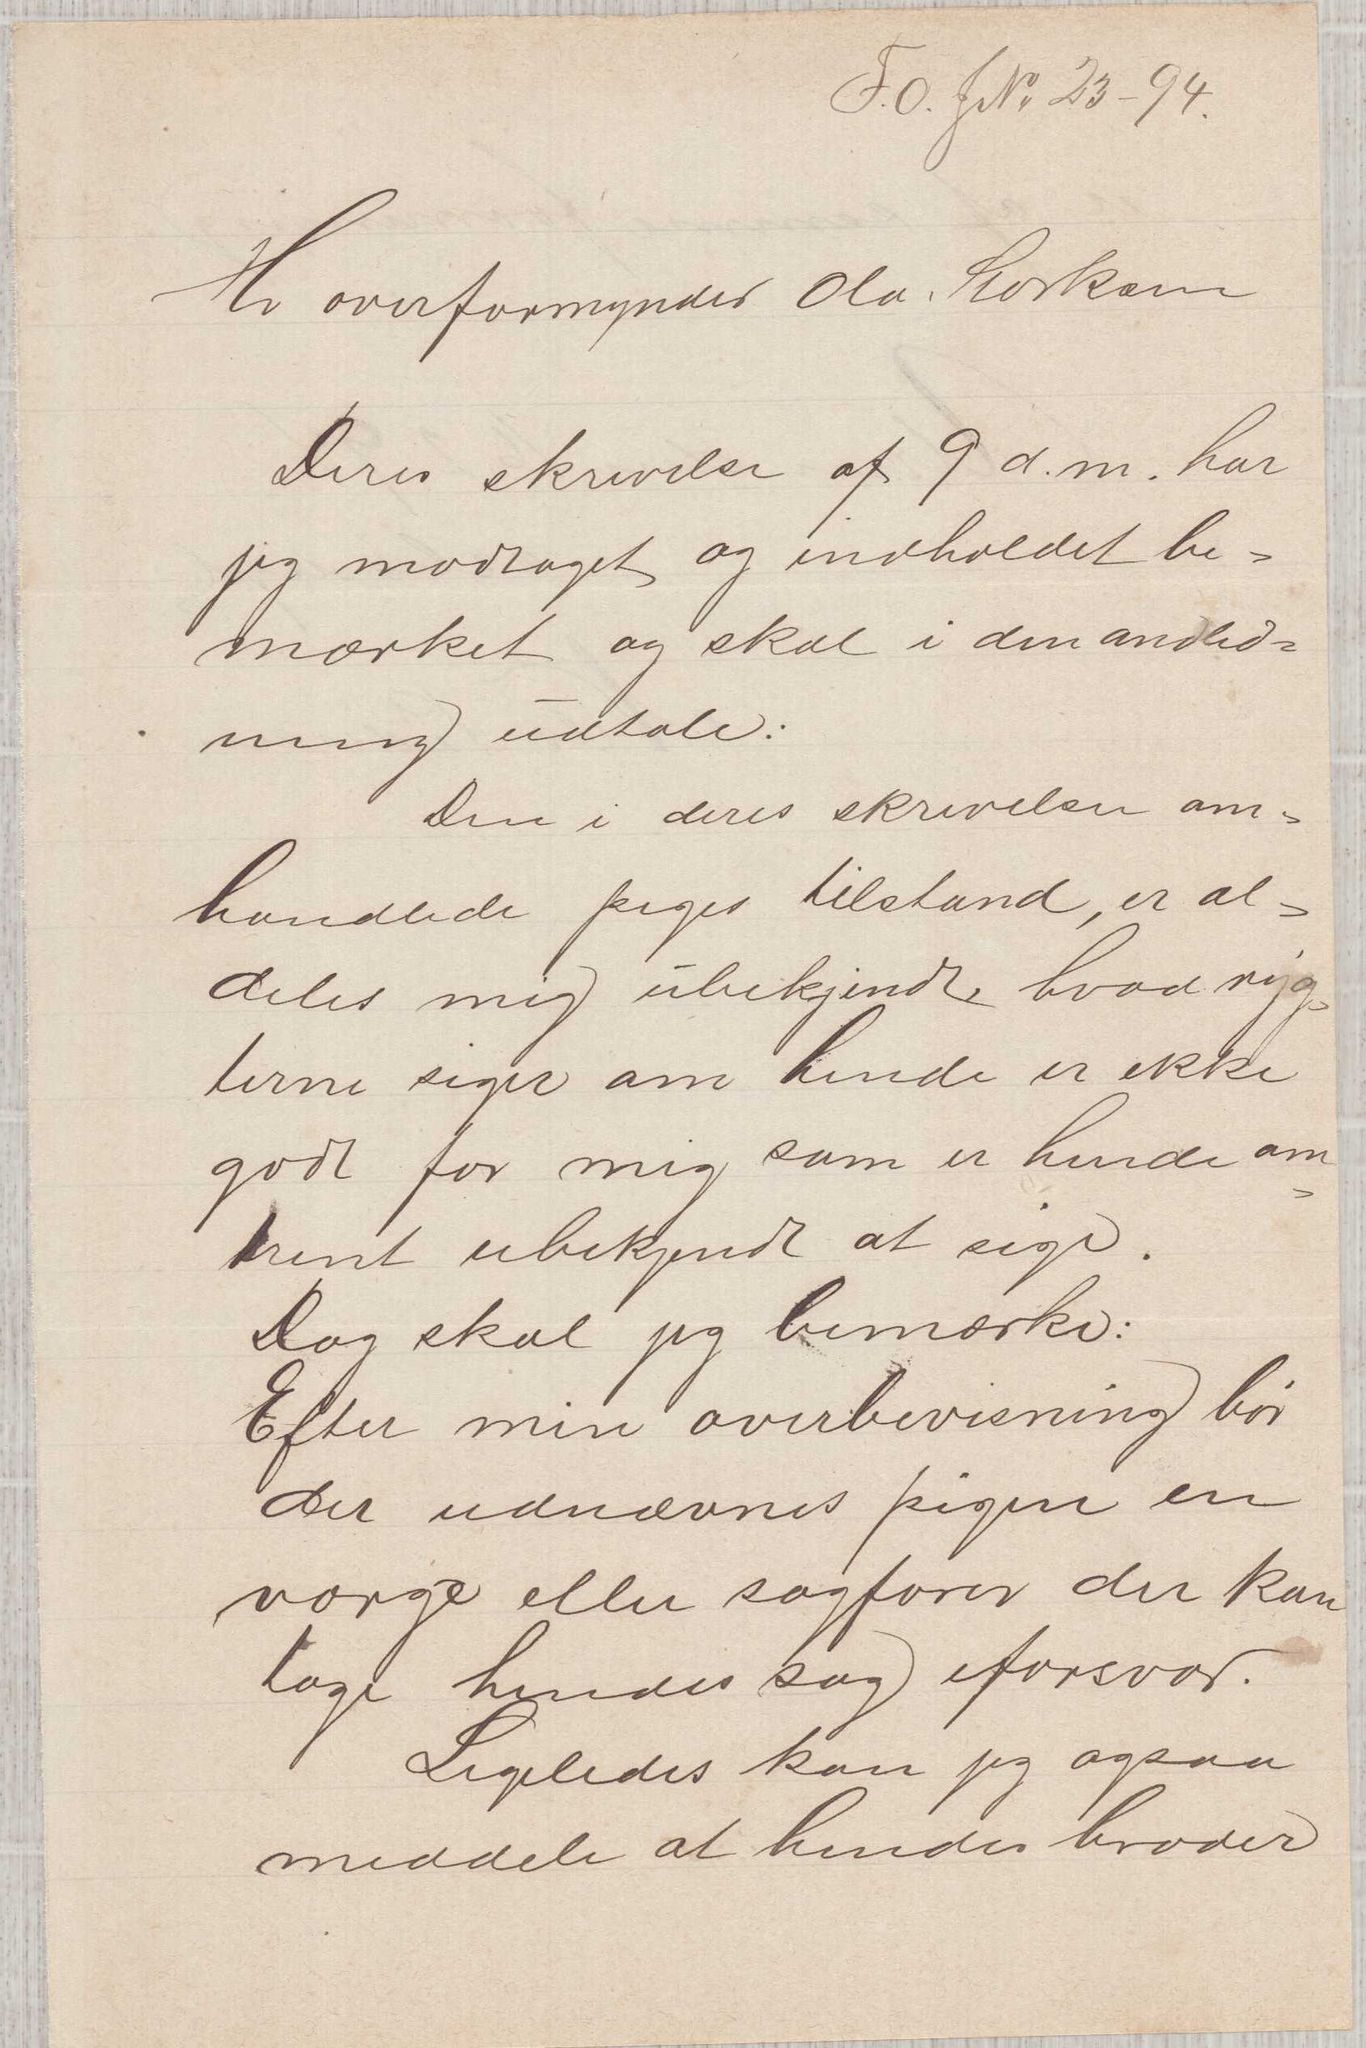 F.O. JNo 23-94.
Hr overformynder Ola. Storksen
Deres skrivelse af 9 d.m. har
jeg modtaget og indholdet be-
mærket og skal i den anled-
ning udtale:
Den i deres skrivelse om-
handlede piges tilstand, er al-
deles mig ubekjendt, hvad ryg-
terne siger om hende er ikke
godt for mig som er hende om-
trent ubekjendt at sige.
Dog skal jeg bemærke:
Efter min overbevisning bør
der udnævnes pigen en
værge eller sagfører der kan
tage hendes sag iforsvar.
Ligeledes kan jeg ogsaa
meddele at hendes broder